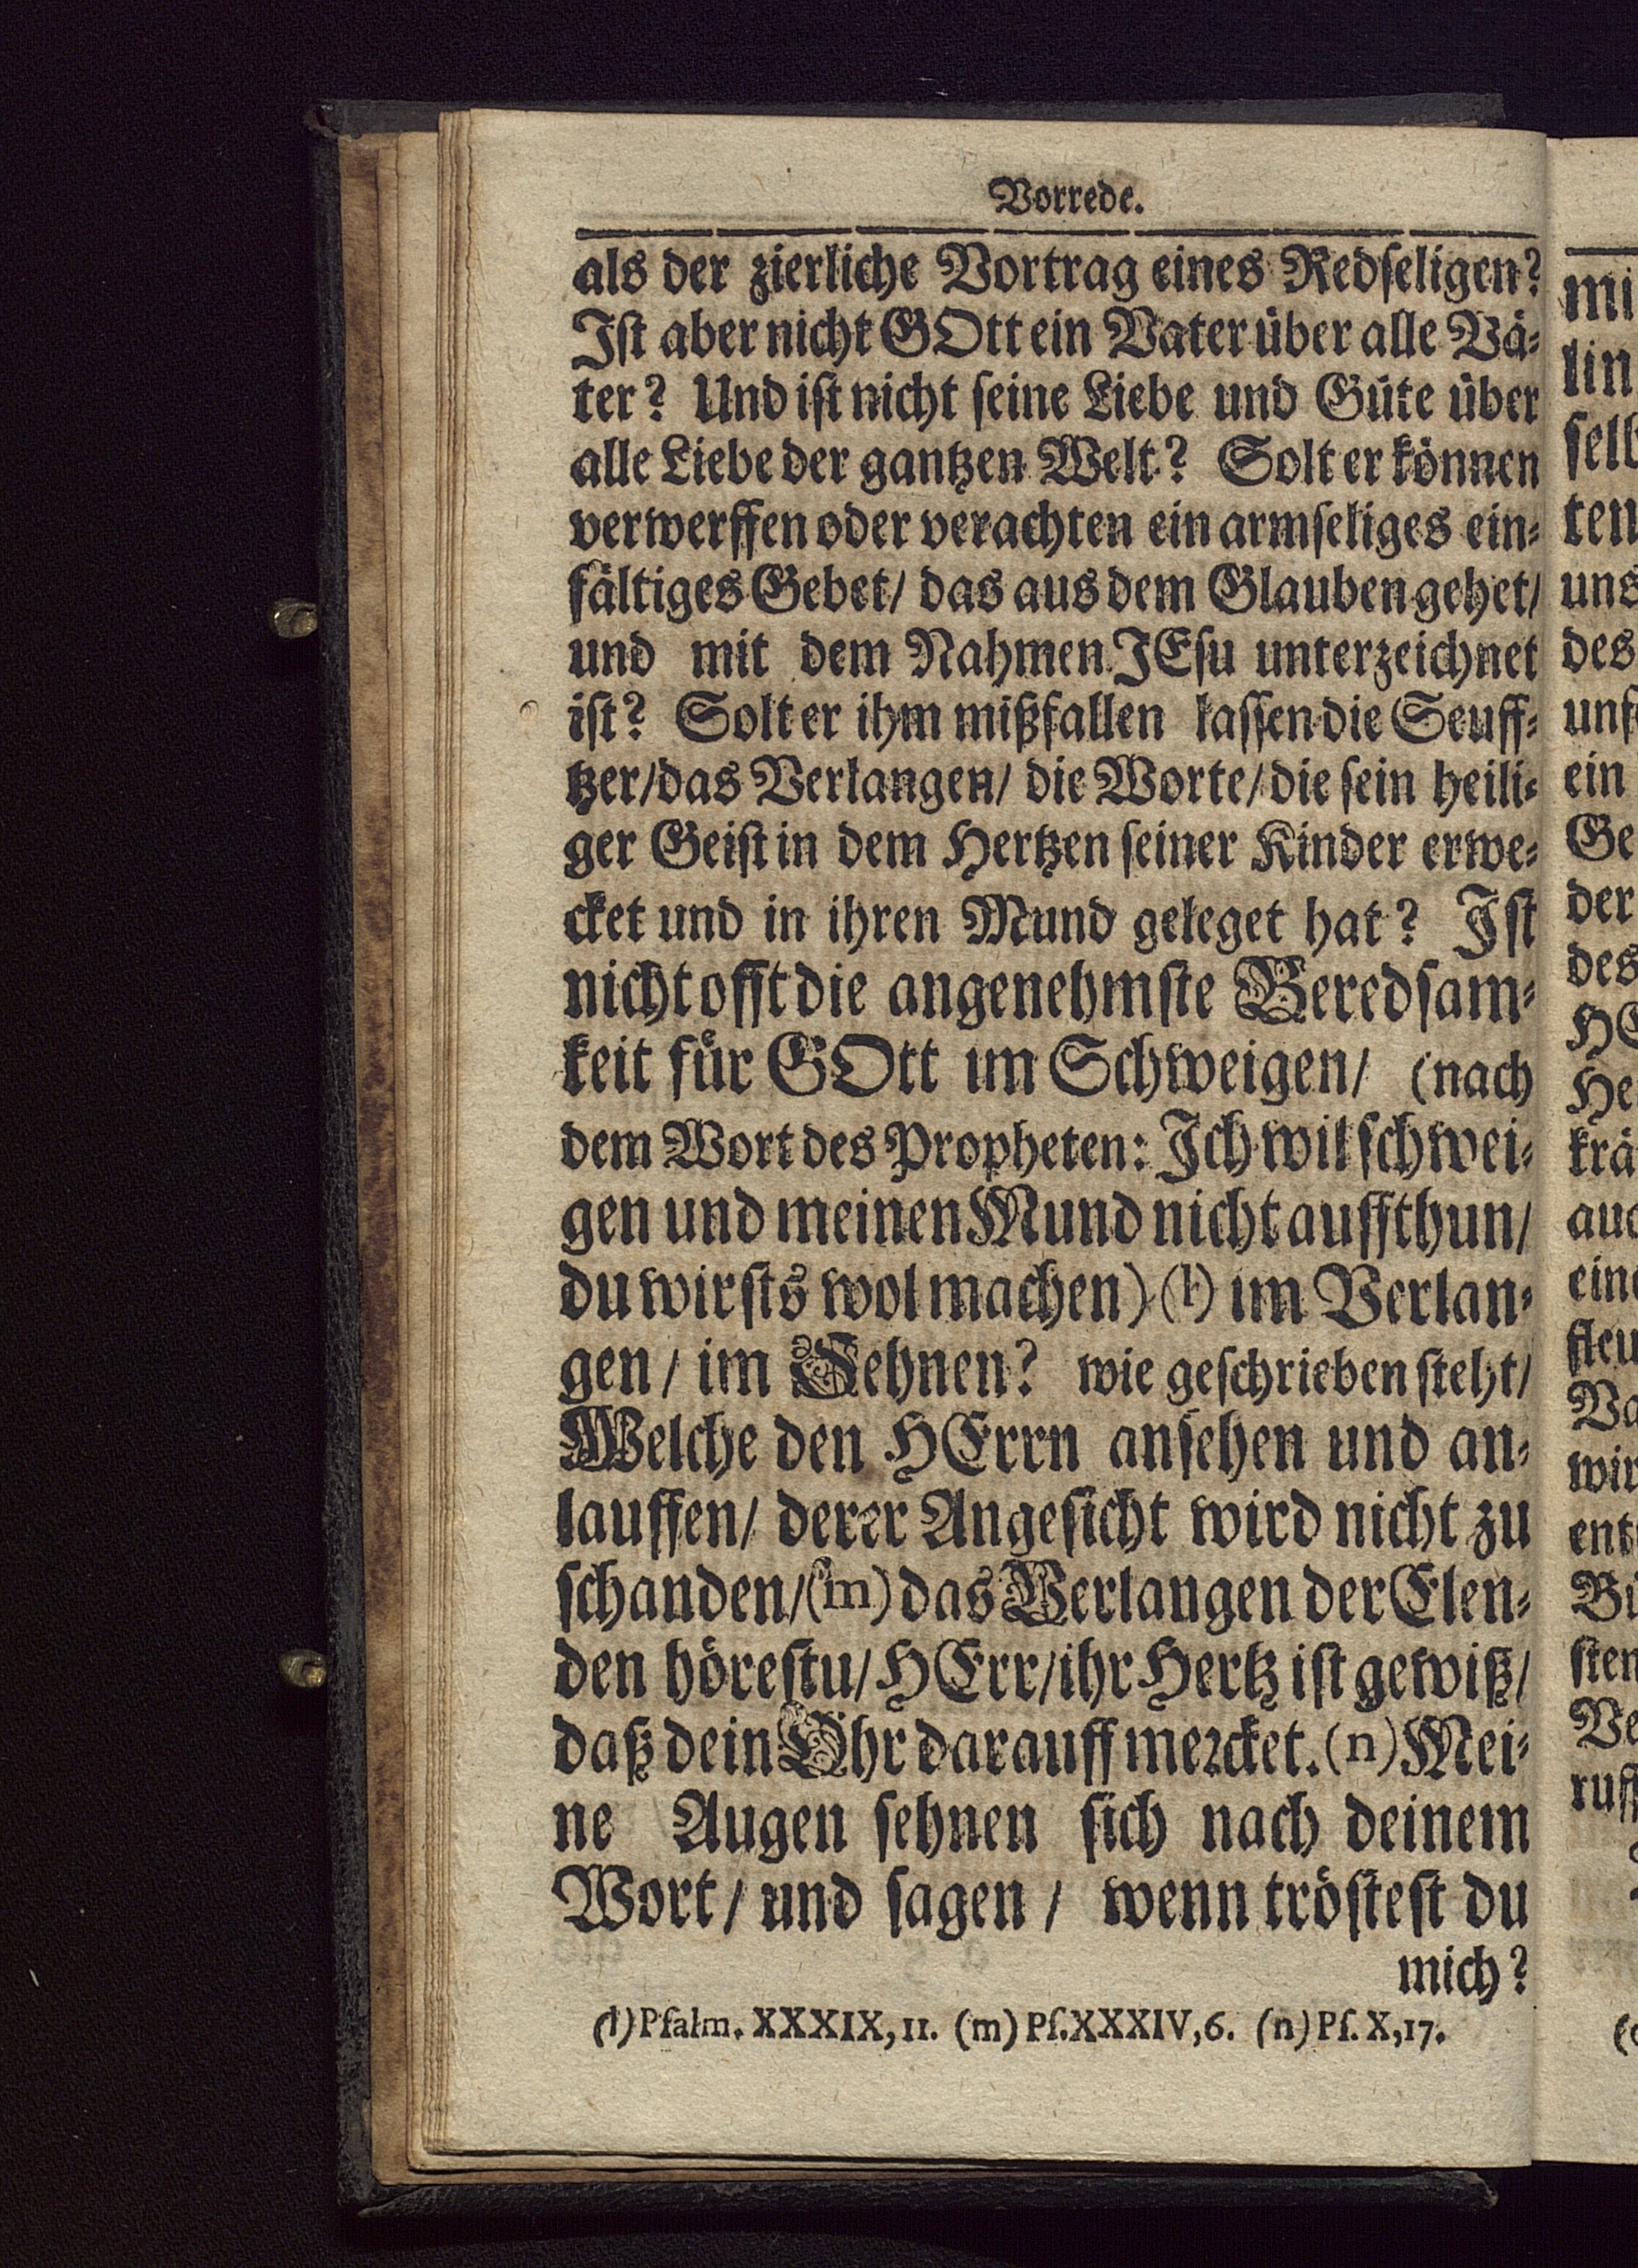 Vorrede.
als der zierliche Vortrag eines Redſeligen?
Iſt aber nicht GOtt ein Vater über alle Vä-
ter? Und iſt nicht ſeine Liebe und Güte über
alle Liebe der gantzen Welt? Solt er können
verwerffen oder verachten ein armſeliges ein-
fältiges Gebet/ das aus dem Glauben gehet/
und mit dem Nahmen JEſu unterzeichnet
iſt? Solt er ihm mißfallen laſſen die Seuff-
tzer/das Verlangen/ die Worte/die ſein heili-
ger Geiſt in dem Hertzen ſeiner Kinder erwe-
cket und in ihren Mund geleget hat? Iſt
nicht offt die angenehmſte Beredſam-
keit für GOtt im Schweigen/ (nach
dem Wort des Propheten: Ich wil ſchwei-
gen und meinen Mund nicht auffthun/
du wirſts wol machen) (l) im Verlan-
gen/ im Sehnen? wie geſchrieben ſteht/
Welche den HErrn anſehen und an-
lauffen/ derer Angeſicht wird nicht zu
ſchanden/(m) das Verlangen der Elen-
den höreſtu/HErr/ihr Hertz iſt gewiß/
daß dein Ohr darauff mercket. (n) Mei-
ne Augen ſehnen ſich nach deinem
Wort/ und ſagen/ wenn tröſteſt du
mich?
(l) Pſalm. XXXIX, 11. (m) Pſ. XXXIV, 6. (n) Pſ. X, 17.
mi
lin
ſelb
ten
uns
des
unſ
ein
Ge
der
des
HE
He
krä
auc
eine
fleu
Va
wir
ent
Bü
ſten
Ve
ruff